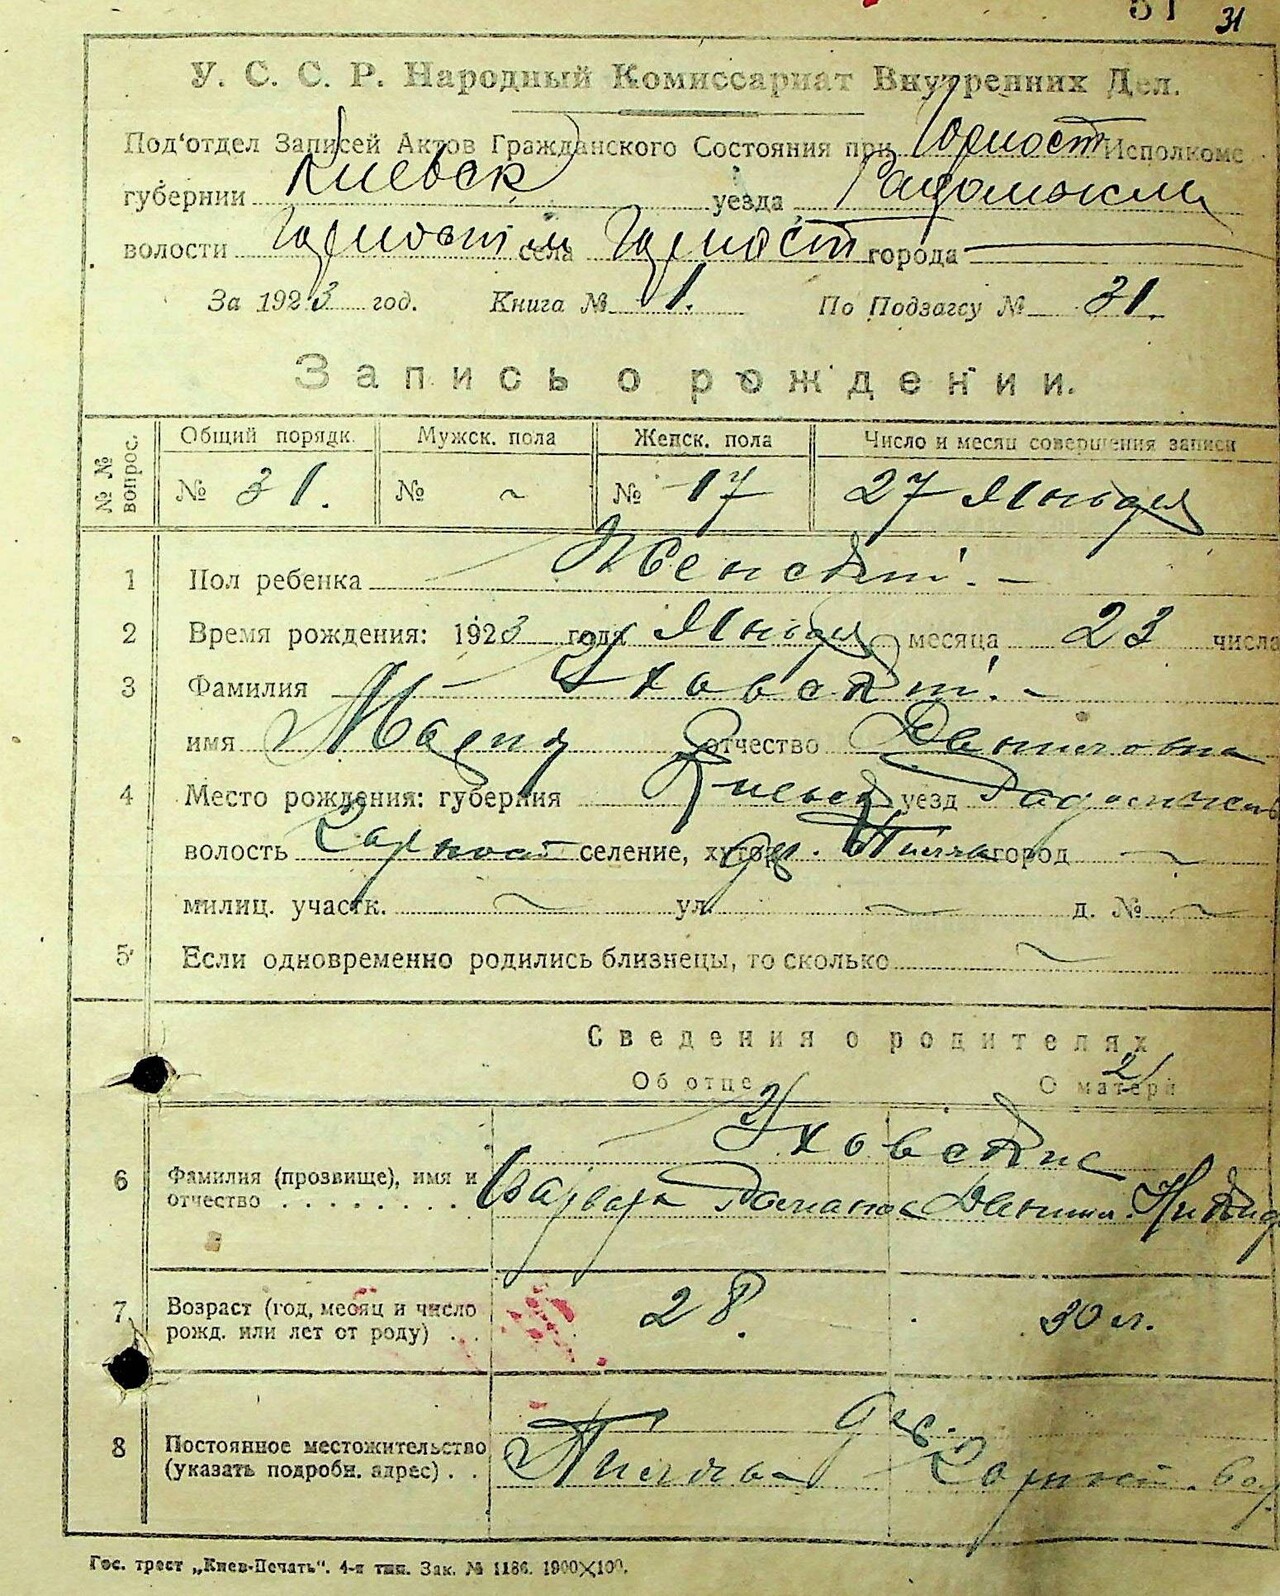 31
У. С. С. Р. Народный Комиссариат Внутренних Дел.
Под'отдел Записей Актов Гражданского Состояния при Горност Исполкоме
губернии Киевск уезда Радомысл
волости Горностай села Горност города
За 1923 год. Книга № 1. По Подзагсу № 31.
Запись о рождении.
№ № вопрос. Общий порядк. Мужск. пола Женск. пола Число и месяц совершения записи
№ 31. № ~ № 17 27 Января
1 Пол ребенка Женский. –
2 Время рождения: 1923 года Января месяца 23 числа
3 Фамилия Уховский. –
имя Мария отчество Даниловна
4 Место рождения: губерния Киевск уезд Радомысл
волость Горност селение, хутор город ~
милиц. участк. ~ ул. ~ д. № ~
5 Если одновременно родились близнецы, то сколько ~
Сведения о родителях
Об отце О матери
Уховские
6 Фамилия (прозвище), имя и отчество . . . . . . . . Варвара Данил.
7 Возраст (год, месяц и число рожд. или лет от роду) . . 28. 30 л.
8 Постоянное местожительство (указать подробн. адрес) . . Горност. вол.
Гос. трест „Киев-Печать“. 4-я тип. Зак. № 1186. 1900×100.